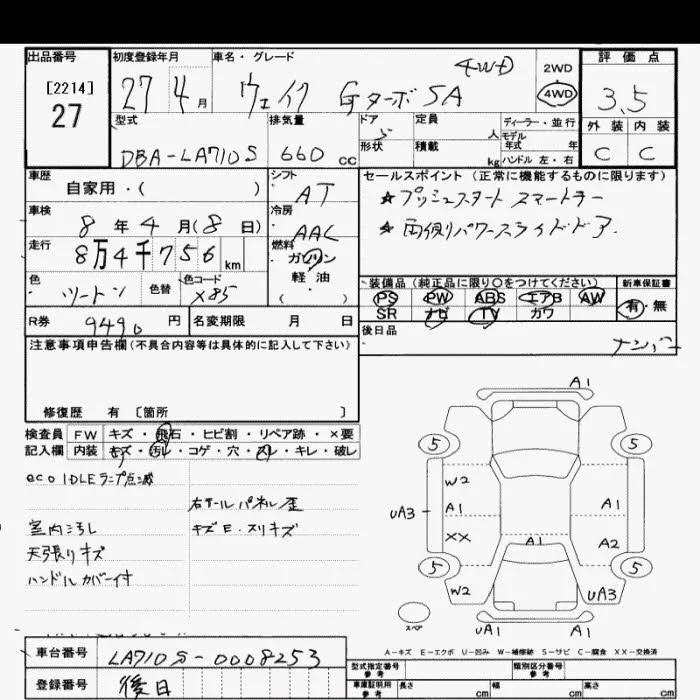 出品番号
[2214]
27
初度登録年月
27 4月
車名・グレード
ウェイク Gターボ SA
4WD
2WD
4WD
評価点
3.5
外装 内装
C C
型式
DBA-LA710S
排気量
660 cc
ドア
5
形状
定員
人
積載
kg
ディーラー・並行
モデル
年式 年
ハンドル 左・右
車歴
自家用・( )
シフト
AT
車検
8年4月(8日)
冷房
AAC
走行
8万4千756km
燃料
ガソリン
軽油
( )
色
ツートン
色替
色コード
X85
R券
9490円
名変期限 月 日
セールスポイント(正常に機能するものに限ります)
☆プッシュスタート スマートキー
☆両側パワースライドドア
装備品(純正品に限り○をつけてください)
PS PW ABS エアB AW
SR ナビ TV カワ
新車保証書
有・無
後日品
ナンバー
注意事項申告欄(不具合内容等は具体的に記入して下さい)
修復歴 有 [箇所 ]
検査員 FW キズ・飛石・ヒビ割・リペア跡・×要
記入欄 内装 キズ・汚レ・コゲ・穴・スレ・キレ・破レ
eco IDLEランプ点滅
室内汚し
天張りキズ
ハンドルカバー付
右テールパネル歪
キズE・スリキズ
A1
5 5
W2
uA3 A1 A1
XX A1 A2
5 5
W2 uA3
スペア
uA1 A1
A-キズ E-エクボ U-凹み W-補修跡 S-サビ C-腐食 XX-交換済
車台番号
LA710S-0008253
登録番号
後日
型式指定番号
参考
類別区分番号
参考
車庫証明用
参考
長さ cm
幅 cm
高さ cm